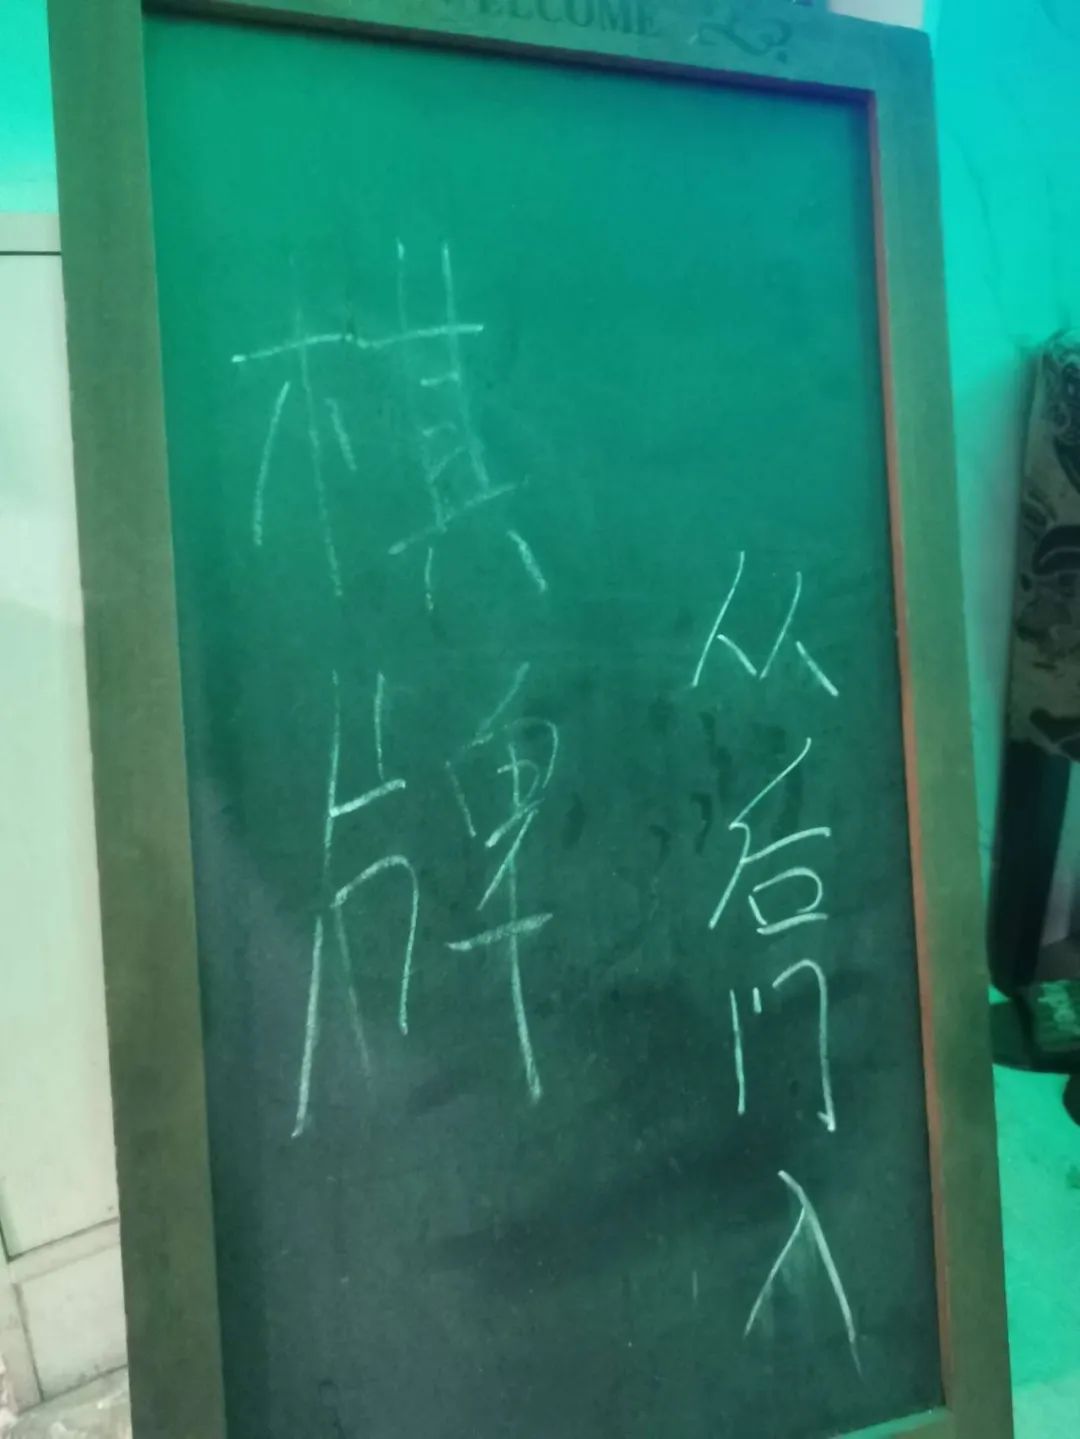 WELCOME
棋牌
从后门入